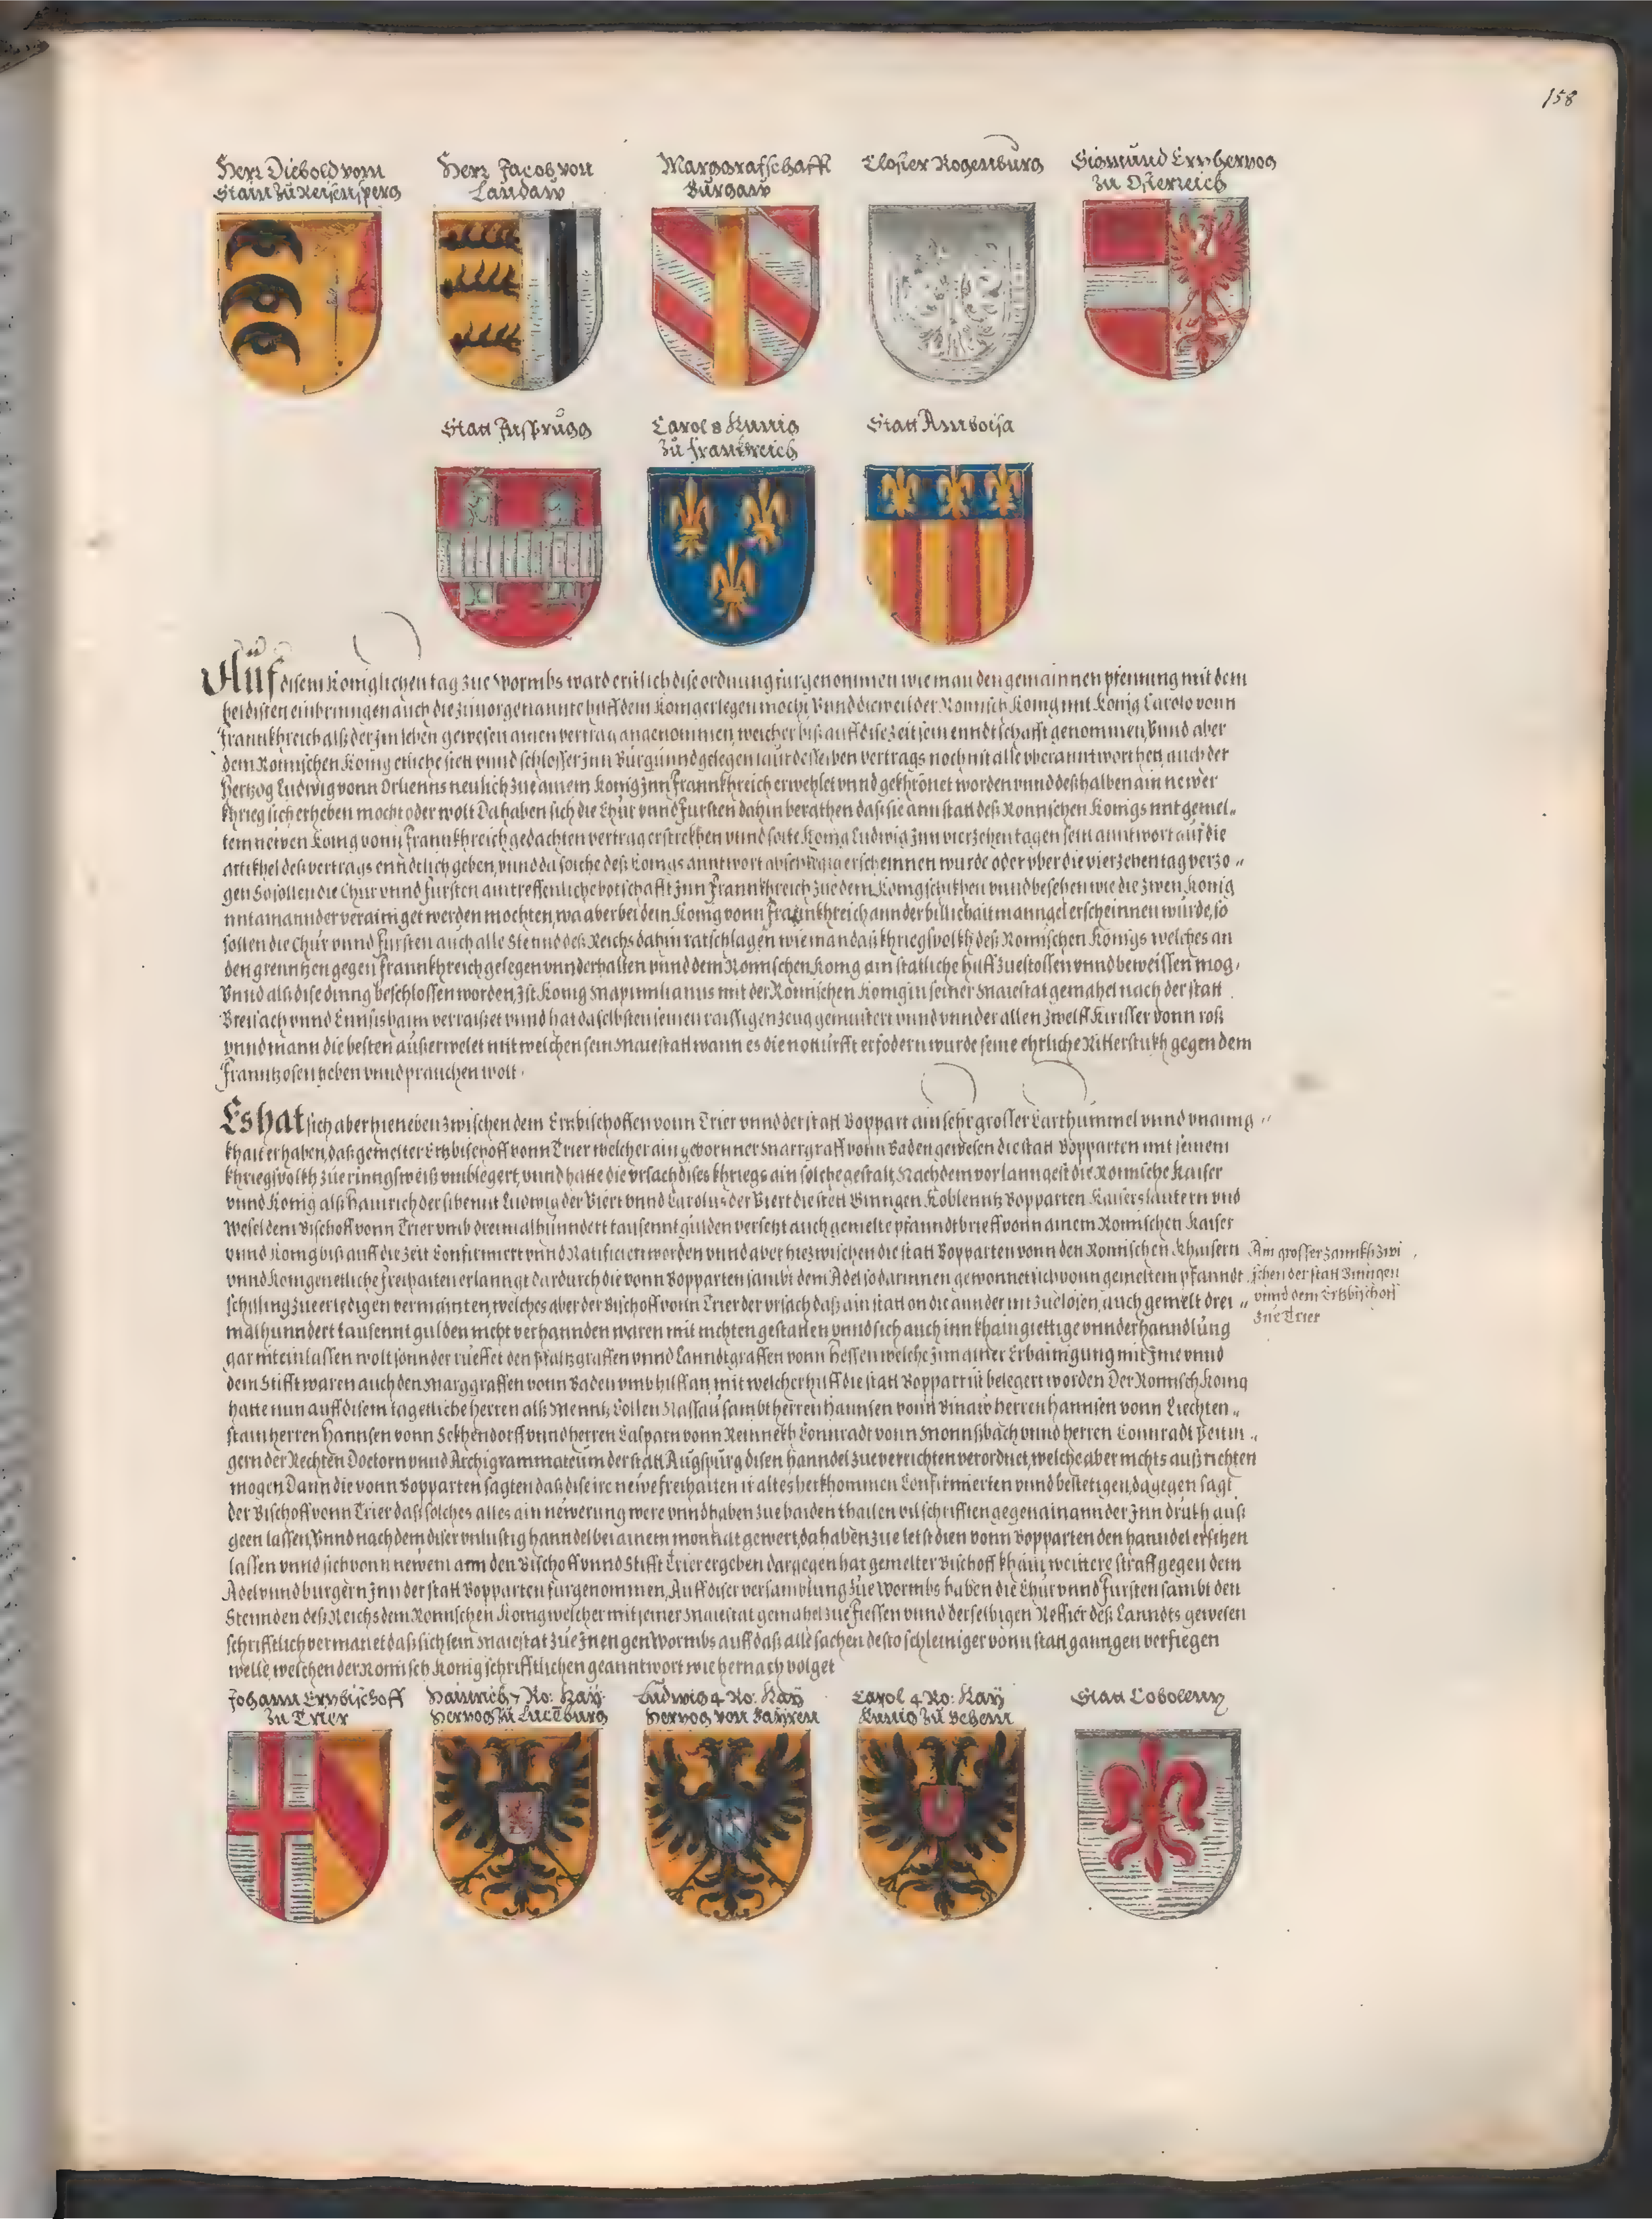 158
Herr Diebold vom
Stain zů Reisensperg
Herr Jacob von
Landaw
Marggrafschafft
Burgaw
Closter Rogenburg
Sigmund Ertzhertzog
zu Osterreich
Statt Jnsprugg
Carol 8 Kunig
zů Franckreich
Statt Amboisa
Auf disem Koniglichen tag zue Wormbs ward erstlich dise ordnung furgenommen wie man den gemainnen pfenning mit dem
beldisten einbringen auch die zuuor genannte hilff dem Konig erlegen mocht, Vnnd dieweil der Romisch Konig mit Konig Carolo vonn
Frannkhreich alß der jm leben gewesen ainen vertrag angenommen, welcher biß auff dise zeit sein enndtschafft genommen, Vnnd aber
dem Romischen Konig etliche stett vnnd schlosser jnn Burgunnd gelegen laut desselben vertrags noch nit alle vberanntworthet, auch der
Hertzog Ludwig vonn Orlienns neulich zue ainem Konig jnn Frannkhreich erwehlet vnnd gekhrönet worden vnnd deßhalben ain newer
khrieg sich erheben mocht oder wolt Da haben sich die Chur vnnd Fursten dahin berathen das sie ann statt deß Romischen Konigs mit gemel„
tem newen Konig vonn Frannkhreich gedachten vertrag erstrekhen vnnd solte Konig Ludwig jnn vierzehen tagen sein anntwort auf die
artikhel deß vertrags enndtlich geben, vnnd da solche deß Konigs anntwort abschlegig erscheinnen wurde oder vber die vierzehen tag verzo„
gen So sollen die Chur vnnd Fursten ain treffenliche botschafft jnn Frannkhreich zue dem Konig schikhen vnnd besehen wie die zwen Konig
mit ainannder verainiget werden mochten, wa aber bei dem Konig vonn Frannkhreich ann der billichait manngel erscheinnen wurde, so
sollen die Chur vnnd Fursten auch alle Stennd deß Reichs dahin ratschlagen wie man das khriegsvolkh deß Romischen Konigs welches an
den grenntzen gegen Frannkhreich gelegen vnnderhalten vnnd dem Romischen Konig ain statliche hilff zuestossen vnnd beweissen mog,
Vnnd als dise dinng beschlossen worden, ist Konig Maximilianus mit der Romischen Konigin seiner Maiestat gemahel nach der statt
Breisach vnnd Ennsishaim verraißet vnnd hat daselbsten seinen raissigen zeug gemustert vnnd vnnder allen zwelff Kirisser vonn roß
vnnd mann die besten außerwelet mit welchen sein Maiestatt wann es die notturfft erfodern wurde seine ehrliche Ritterstukh gegen dem
Franntzosen yeben vnnd prauchen wolt.
Es hat sich aber hieneben zwischen dem Ertzbischoffen vonn Trier vnnd der statt Boppart ain sehr grosser Earthummel vnnd vnainig„
khait erhaben, das gemelter Ertzbischoff vonn Trier welcher ain geborner Marrgraff vonn Baden gewesen die statt Bopparten mit seinem
khriegsvolkh zue rinngsweiß vmblegert, vnnd hatte die vrsach dises khriegs ain solche gestalt, Nachdem vor lanngest die Romische Kaiser
vnnd Konig alß Hainrich der sibennt Ludwig der Viert vnnd Carolus der Viert die stett Binngen Koblenntz Bopparten Kaiserslautern vnd
Wesel dem Bischoff vonn Trier vmb dreimalhunndert tausennt gulden versetzt auch gemelte pfanndtbrieff vonn ainem Romischen Kaiser
vnnd Konig biß auff die zeit Confirmiert vnnd Ratificiert worden vnnd aber hiezwischen die statt Bopparten vonn den Romischen Khaisern
vnnd Konigen etliche freihaiten erlanngt dardurch die vonn Bopparten sambt dem Adel so darinnen gewonnet sich vonn gemeltem pfanndt
schilling zue erledigen vermainten, welches aber der Bischoff vonn Trier der vrsach daß ain statt on die annder nit zuelosen, auch gemelt drei„
malhunndert tausennt gulden nicht verhannden waren mit nichten gestatten vnnd sich auch inn khain giettige vnnderhanndlung
gar nit einlassen wolt sonnder rueffet den Pfaltzgraffen vnnd Lanndtgraffen vonn Hessen welche jnn ainer Erbainigung mit jme vnnd
dem Stifft waren auch den Marggraffen vonn Baden vmb hilff an, mit welcher hilff die statt Boppart ist belegert worden Der Romisch Konig
hatte nun auff disem tag etliche herren alß Menntz Collen Nassau sambt herren Haunsen vonn
herren Hannsen vonn Liechten„
stain herren Hannsen vonn Sekhendorff vnnd herren Casparn vonn Conradt vonn vnnd herren Connradt Peutin„
gern der Rechten Doctorn vnnd Archigrammateum der statt Augspurg disen hanndel zue verrichten verordnet, welche aber nichts außrichten
mogen Dann die vonn Bopparten sagten daß dise ire newe freihaiten ir altes herkhommen Confirmierten vnnd bestetigen, dagegen sagt
der Bischoff vonn Trier daß solches alles ain newerung were vnnd haben zue baiden thailen vil schrifften gegen ainannder jnn drukh auß
geen lassen, Vnnd nachdem diser vnlustig hanndel bei ainem monhat gewert, da haben zue letst die vonn Bopparten den hanndel ersitzen
lassen vnnd sich vonn newem ann den Bischoff vnnd Stifft Trier ergeben dargegen hat gemelter Bischoff khain weittere straff gegen dem
Adel vnnd burgern jnn der statt Bopparten furgenommen, Auff diser versamblung zue Wormbs haben die Chur vnnd Fursten sambt den
Stennden deß Reichs dem Romischen Konig welcher mit seiner Maiestat gemahel zue Fiessen vnnd derselbigen Refier deß Lanndts gewesen
schrifftlich vermanet daß sich sein Maiestat zue jnen gen Wormbs auff daß alle sachen desto schleiniger vonn statt ganngen verfiegen
welle, welchen der Romisch Konig schrifftlichen geanntwort wie hernach volget
Ain grosser zannkh zwi
schen der statt Binngen
vnnd dem Ertzbischoff
zue Trier
Johann Ertzbischoff
zu Trier
Hainrich 7 Ro: Kaÿ:
Hertzog zu Lucelburg
Ludwig 4 Ro: Kaÿ
Hertzog von Bayren
Carol 4 Ro: Kaÿ
Kunig zů Behem
Statt Cobolentz